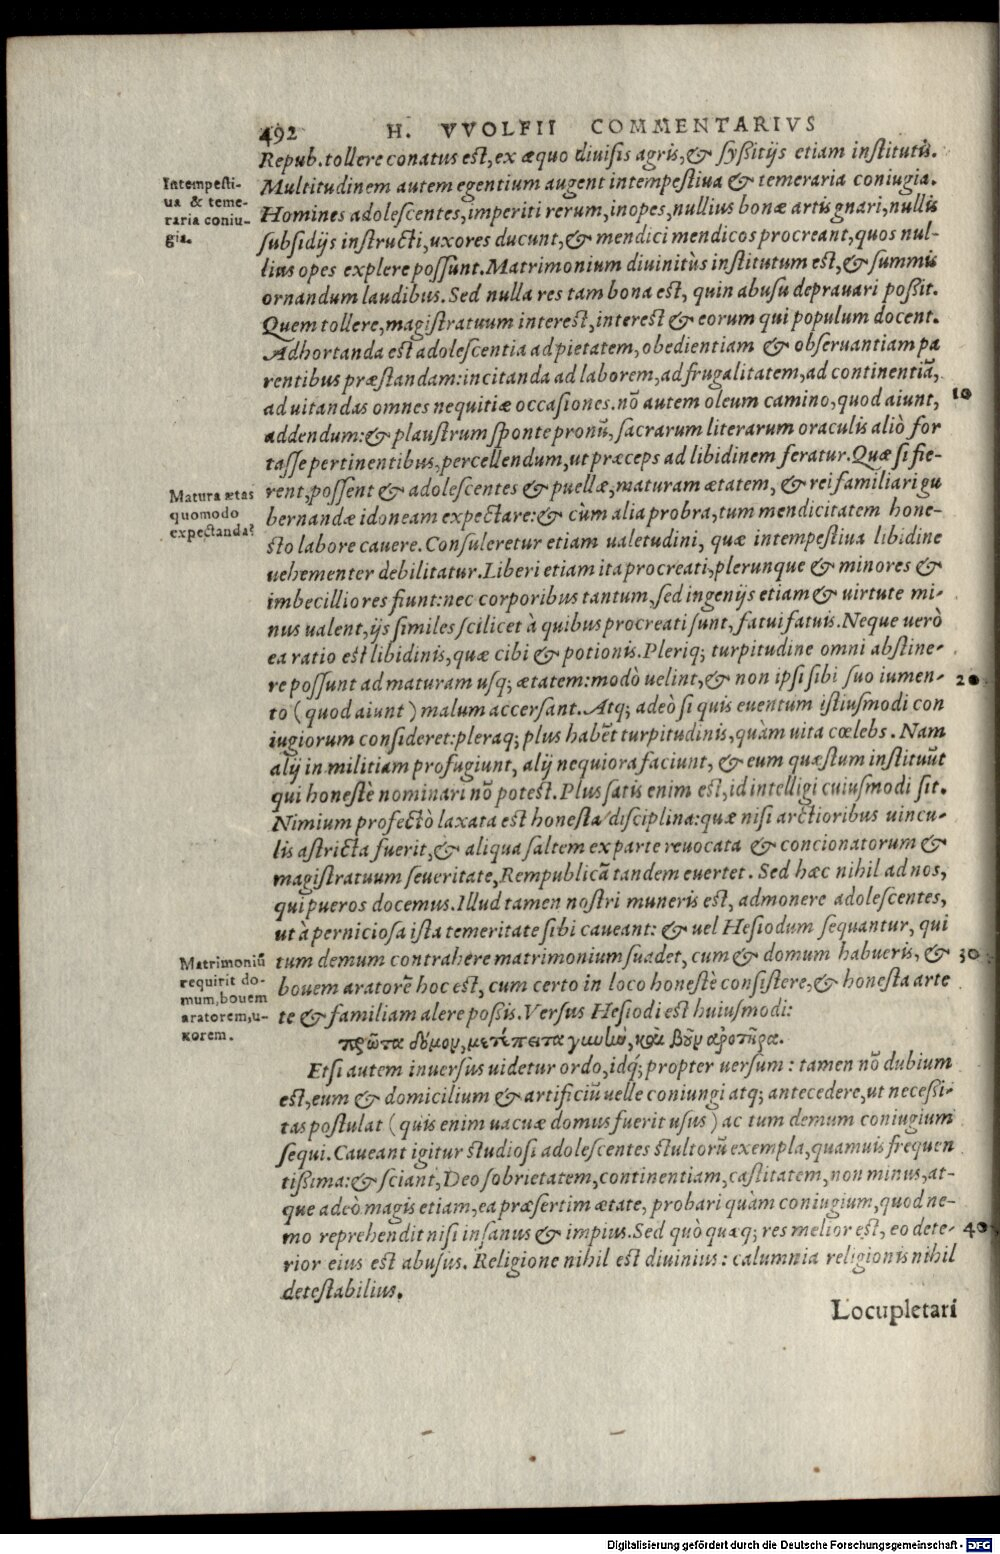 492 H. VVOLFII COMMENTARIVS
Repub. tollere conatus est, ex æquo diuisis agris, & syßitijs etiam institutis.
Intempesti-
ua & teme-
raria coniu-
gia.
Multitudinem autem egentium augent intempestiua & temeraria coniugia.
Homines adolescentes, imperiti rerum, inopes, nullius bonæ artis gnari, nullis
subsidijs instructi, uxores ducunt, & mendici mendicos procreant, quos nul-
lius opes explere possunt. Matrimonium diuinitùs institutum est, & summis
ornandum laudibus. Sed nulla res tam bona est, quin abusu deprauari poßit.
Quem tollere, magistratuum interest, interest & eorum qui populum docent.
Adhortanda est adolescentia ad pietatem, obedientiam & obseruantiam pa
rentibus præstandam: incitanda ad laborem, ad frugalitatem, ad continentiã,
ad uitandas omnes nequitiæ occasiones. nõ autem oleum camino, quod aiunt, 10
addendum: & plaustrum sponte pronũ, sacrarum literarum oraculis aliò for
tasse pertinentibus, percellendum, ut præceps ad libidinem feratur. Quæ si fie-
Matura ætas
quomodo
expectanda?
rent, possent & adolescentes & puellæ, maturam ætatem, & rei familiari gu
bernandæ idoneam expectare: & cùm alia probra, tum mendicitatem hone-
sto labore cauere. Consuleretur etiam ualetudini, quæ intempestiua libidine
uehementer debilitatur. Liberi etiam ita procreati, plerunque & minores &
imbecilliores fiunt: nec corporibus tantum, sed ingenijs etiam & uirtute mi-
nus ualent, ijs similes scilicet à quibus procreati sunt, fatui fatuis. Neque uerò
ea ratio est libidinis, quæ cibi & potionis. Pleriq; turpitudine omni abstine-
re possunt ad maturam usq; ætatem: modò uelint, & non ipsi sibi suo iumen- 20
to (quod aiunt) malum accersant. Atq; adeò si quis euentum istiusmodi con
iugiorum consideret: pleraq; plus habẽt turpitudinis, quàm uita cœlebs. Nam
alij in militiam profugiunt, alij nequiora faciunt, & eum quæstum instituũt
qui honestè nominari nõ potest. Plus satis enim est, id intelligi cuiusmodi sit.
Nimium profectò laxata est honesta disciplina: quæ nisi arctioribus uincu-
lis astricta fuerit, & aliqua saltem ex parte reuocata & concionatorum &
magistratuum seueritate, Rempublicã tandem euertet. Sed hæc nihil ad nos,
qui pueros docemus. Illud tamen nostri muneris est, admonere adolescentes,
ut à perniciosa ista temeritate sibi caueant: & uel Hesiodum sequantur, qui
Matrimoniũ
requirit do-
mum, bouem
aratorem, u-
xorem.
tum demum contrahere matrimonium suadet, cum & domum habueris, & 30
bouem aratorẽ hoc est, cum certo in loco honestè consistere, & honesta arte
te & familiam alere poßis. Versus Hesiodi est huiusmodi:
πρῶτα δόμον, μετέπειτα γυναῖ, καὶ βοῦν ἀροτῆρα.
Etsi autem inuersus uidetur ordo, idq́; propter uersum: tamen nõ dubium
est, eum & domicilium & artificiũ uelle coniungi atq; antecedere, ut neceßi-
tas postulat (quis enim uacuæ domus fuerit usus) ac tum demum coniugium
sequi. Caueant igitur studiosi adolescentes stultorũ exempla, quamuis frequen
tißima: & sciant, Deo sobrietatem, continentiam, castitatem, non minus, at-
que adeò magis etiam, ea præsertim ætate, probari quàm coniugium, quod ne-
mo reprehendit nisi insanus & impius. Sed quò quæq; res melior est, eo dete- 40
rior eius est abusus. Religione nihil est diuinius: calumnia religionis nihil
detestabilius.
Locupletari
Digitalisierung gefördert durch die Deutsche Forschungsgemeinschaft - DFG